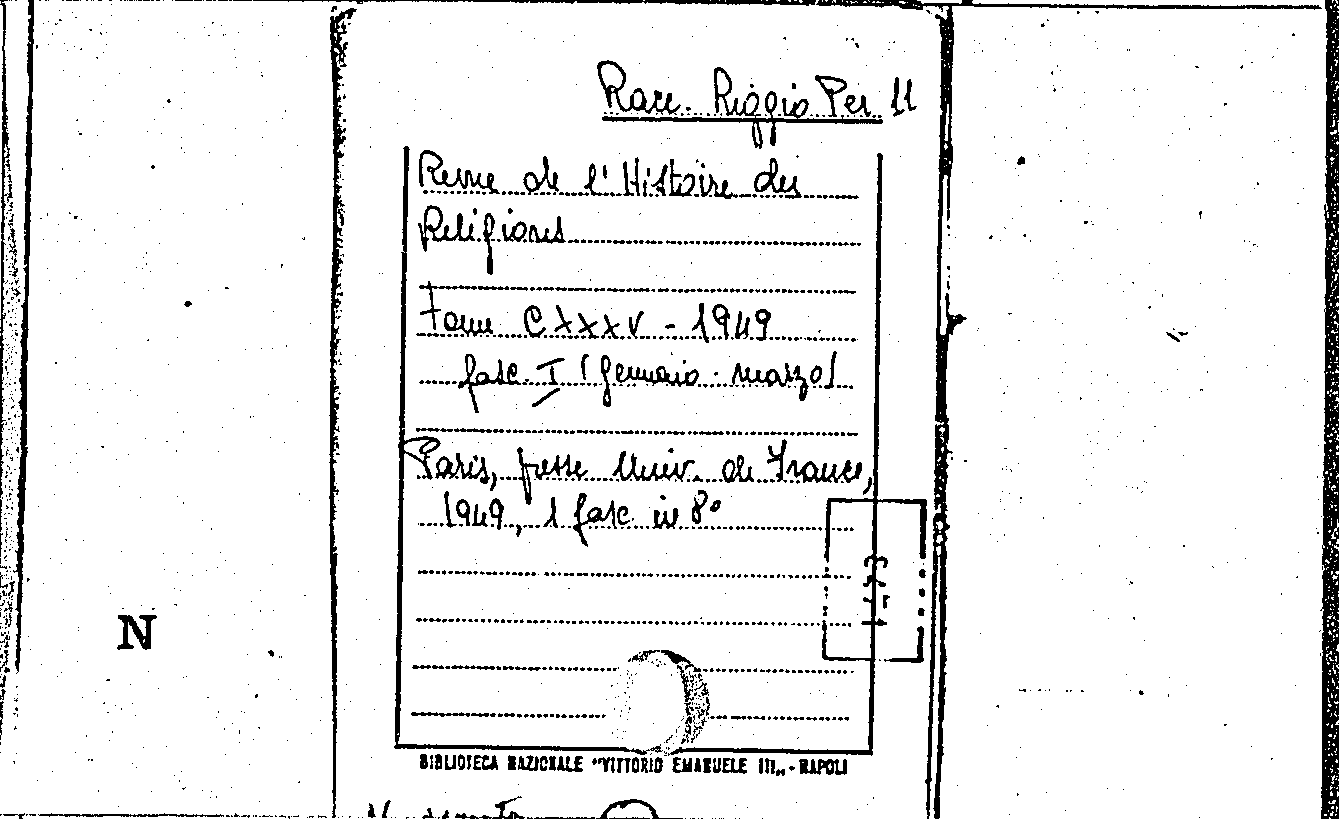 Racc. Reggio Per 11
Revue de l'Histoire des
Religions
tome CXXXV - 1949
fasc. I (gennaio - marzo)
Paris, presse Univ. de France,
1949, 1 fasc in 8°
N
BIBLIOTECA NAZIONALE "VITTORIO EMANUELE III„ - NAPOLI